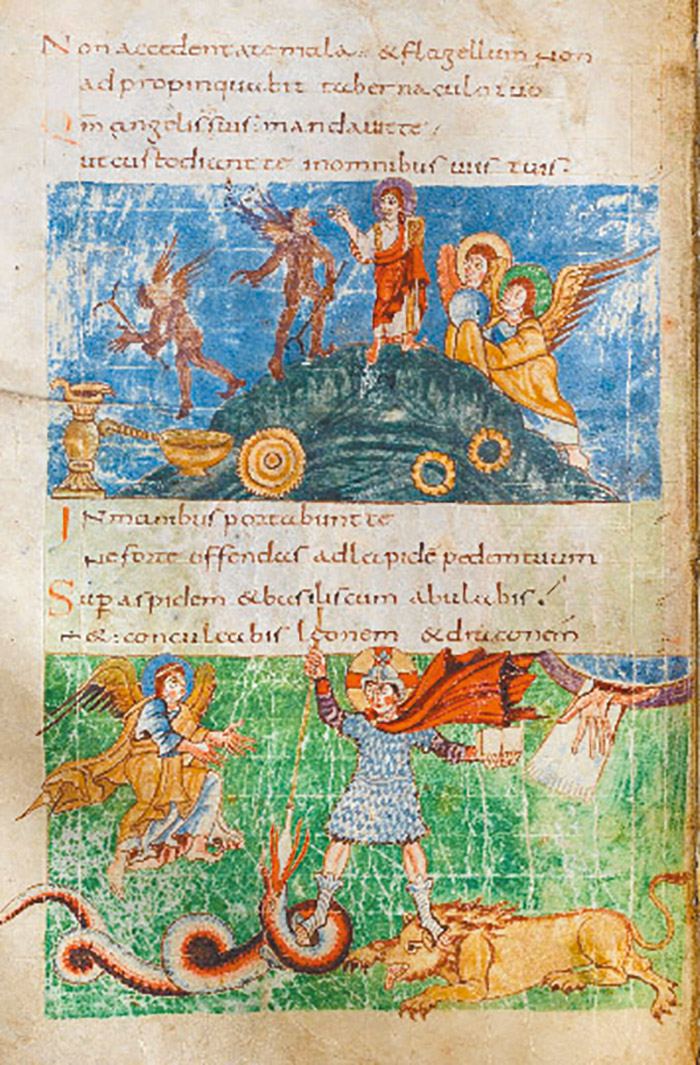 Non accedent ate mala· & flagellum non
adpropinquabit tabernaculo tuo
Qm̄ angelis suis mandavit te,
ut custodiant te inomnibus uiis tuis·
In manibus portabunt te
ne forte offendas ad lapidē pedem tuum
Sup aspidem & basiliscum abulabis·
& conculcabis leonem & draconem